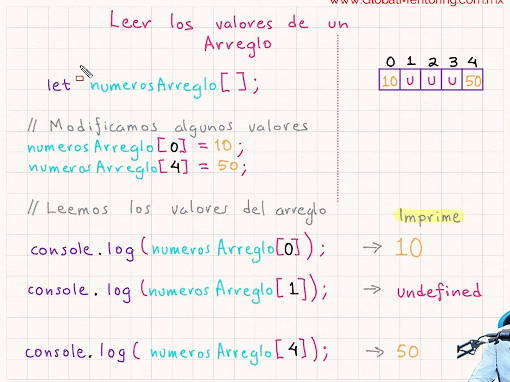 www.GlobalMentoring.com.mx
Leer los valores de un
Arreglo
0 1 2 3 4
10 U U U 50
let numerosArreglo[ ];
// Modificamos algunos valores
numerosArreglo[0] = 10;
numerosArreglo[4] = 50;
// Leemos los valores del arreglo
Imprime
console.log(numerosArreglo[0]); → 10
console.log(numerosArreglo[1]); → undefined
console.log( numerosArreglo[4]); → 50